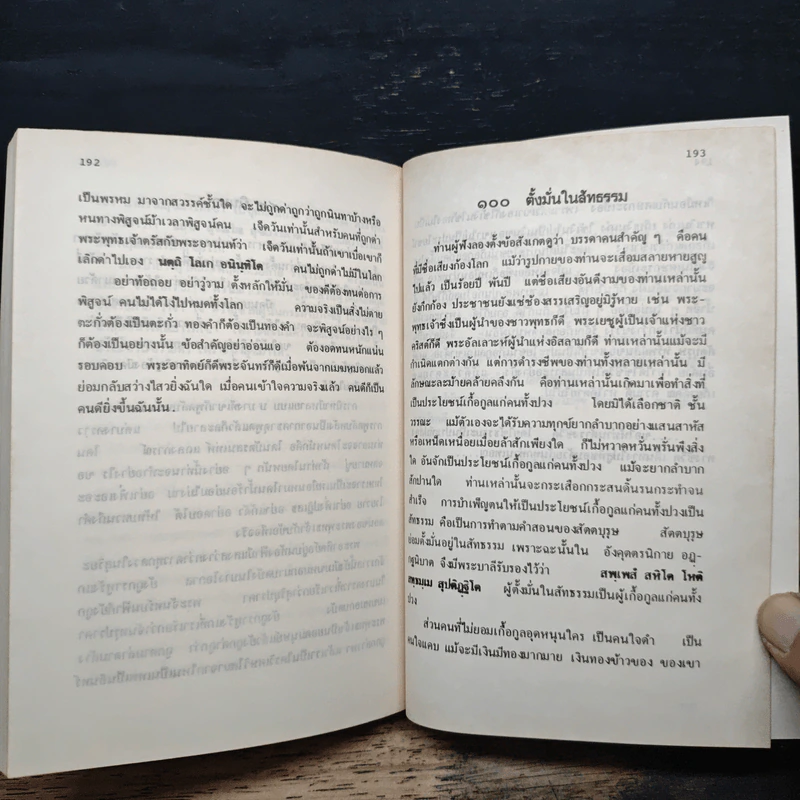 192
เป็นพรหม มาจากสวรรค์ชั้นใด จะไม่ถูกด่าถูกว่าถูกนินทาบ้างหรือ
หนทางพิสูจน์ม้าเวลาพิสูจน์คน เจ็ดวันเท่านั้นสำหรับคนที่ถูกด่า
พระพุทธเจ้าตรัสกับพระอานนท์ว่า เจ็ดวันเท่านั้นถ้าเขาเบื่อเขาก็
เลิกด่าไปเอง นตฺถิ โลเก อนินฺทิโต คนไม่ถูกด่าไม่มีในโลก
อย่าท้อถอย อย่าวู่วาม ตั้งหลักให้มั่น ของดีต้องทนต่อการ
พิสูจน์ คนไม่ได้โง่ไปหมดทั้งโลก ความจริงเป็นสิ่งไม่ตาย
ตะกั่วต้องเป็นตะกั่ว ทองคำก็ต้องเป็นทองคำ จะพิสูจน์อย่างไร ๆ
ก็ต้องเป็นอย่างนั้น ข้อสำคัญอย่าอ่อนแอ ต้องอดทนหนักแน่น
รอบคอบ พระอาทิตย์ก็ดีพระจันทร์ก็ดีเมื่อพ้นจากเมฆหมอกแล้ว
ย่อมกลับสว่างไสวยิ่งฉันใด เมื่อคนเข้าใจความจริงแล้ว คนดีก็เป็น
คนดียิ่งขึ้นฉันนั้น.
193
๑๐๐ ตั้งมั่นในสัทธรรม
ท่านผู้ฟังลองตั้งข้อสังเกตดูว่า บรรดาคนสำคัญ ๆ คือคน
ที่มีชื่อเสียงก้องโลก แม้ว่ารูปกายของท่านจะเสื่อมสลายหายสูญ
ไปแล้ว เป็นร้อยปี พันปี แต่ชื่อเสียงอันดีงามของท่านเหล่านั้น
ยังกึกก้อง ประชาชนยังแซ่ซ้องสรรเสริญอยู่มิรู้หาย เช่น พระ-
พุทธเจ้าซึ่งเป็นผู้นำของชาวพุทธก็ดี พระเยซูผู้เป็นเจ้าแห่งชาว
คริสต์ก็ดี พระอัลเลาะห์ผู้นำแห่งอิสลามก็ดี ท่านเหล่านั้นแม้จะมี
กำเนิดแตกต่างกัน แต่การดำรงชีพของท่านทั้งหลายเหล่านั้น มี
ลักษณะละม้ายคล้ายคลึงกัน คือท่านเหล่านั้นเกิดมาเพื่อทำสิ่งที่
เป็นประโยชน์เกื้อกูลแก่คนทั้งปวง โดยมิได้เลือกชาติ ชั้น
วรรณะ แม้ตัวเองจะได้รับความทุกข์ยากลำบากอย่างแสนสาหัส
หรือเหน็ดเหนื่อยเมื่อยล้าสักเพียงใด ก็ไม่หวาดหวั่นพรั่นพึงสิ่ง
ใด อันจักเป็นประโยชน์เกื้อกูลแก่คนทั้งปวง แม้จะยากลำบาก
สักปานใด ท่านเหล่านั้นจะกระเสือกกระสนดิ้นรนกระทำจน
สำเร็จ การบำเพ็ญตนให้เป็นประโยชน์เกื้อกูลแก่คนทั้งปวงเป็น
สัทธรรม คือเป็นการทำตามคำสอนของสัตตบุรุษ สัตตบุรุษ
ย่อมตั้งมั่นอยู่ในสัทธรรม เพราะฉะนั้นใน อังคุตตรนิกาย อฏ-
ฐกนิบาต จึงมีพระบาลีรับรองไว้ว่า สพฺเพสํ สหิโต โหติ
สทฺธมฺเม สุปติฏฺฐิโต ผู้ตั้งมั่นในสัทธรรมเป็นผู้เกื้อกูลแก่คนทั้ง
ปวง
ส่วนคนที่ไม่ยอมเกื้อกูลอุดหนุนใคร เป็นคนใจดำ เป็น
คนใจแคบ แม้จะมีเงินมีทองมากมาย เงินทองข้าวของ ของเขา